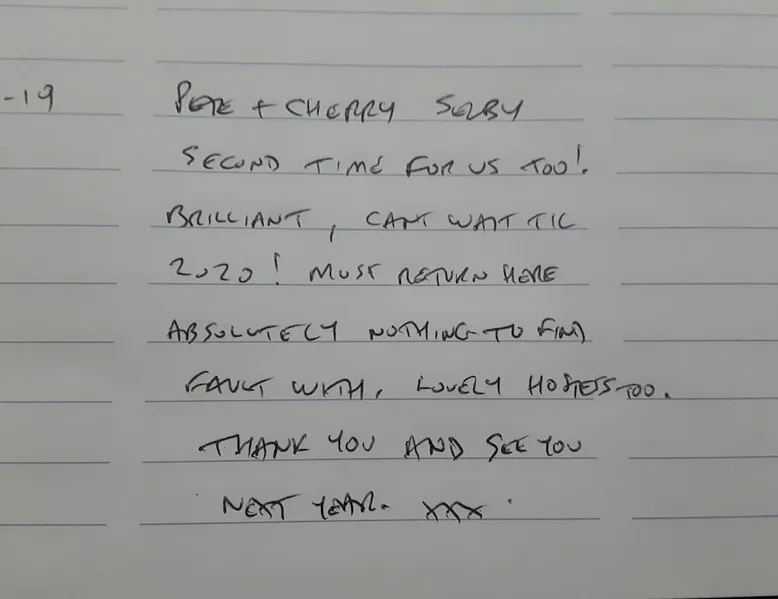 -19 PETE + CHERRY SELBY
SECOND TIME FOR US TOO!.
BRILLIANT, CANT WAIT TIL
2020! MUST RETURN HERE
ABSOLUTELY NOTHING TO FIND
FAULT WITH, LOVELY HOSTESS TOO.
THANK YOU AND SEE YOU
NEXT YEAR. XXX